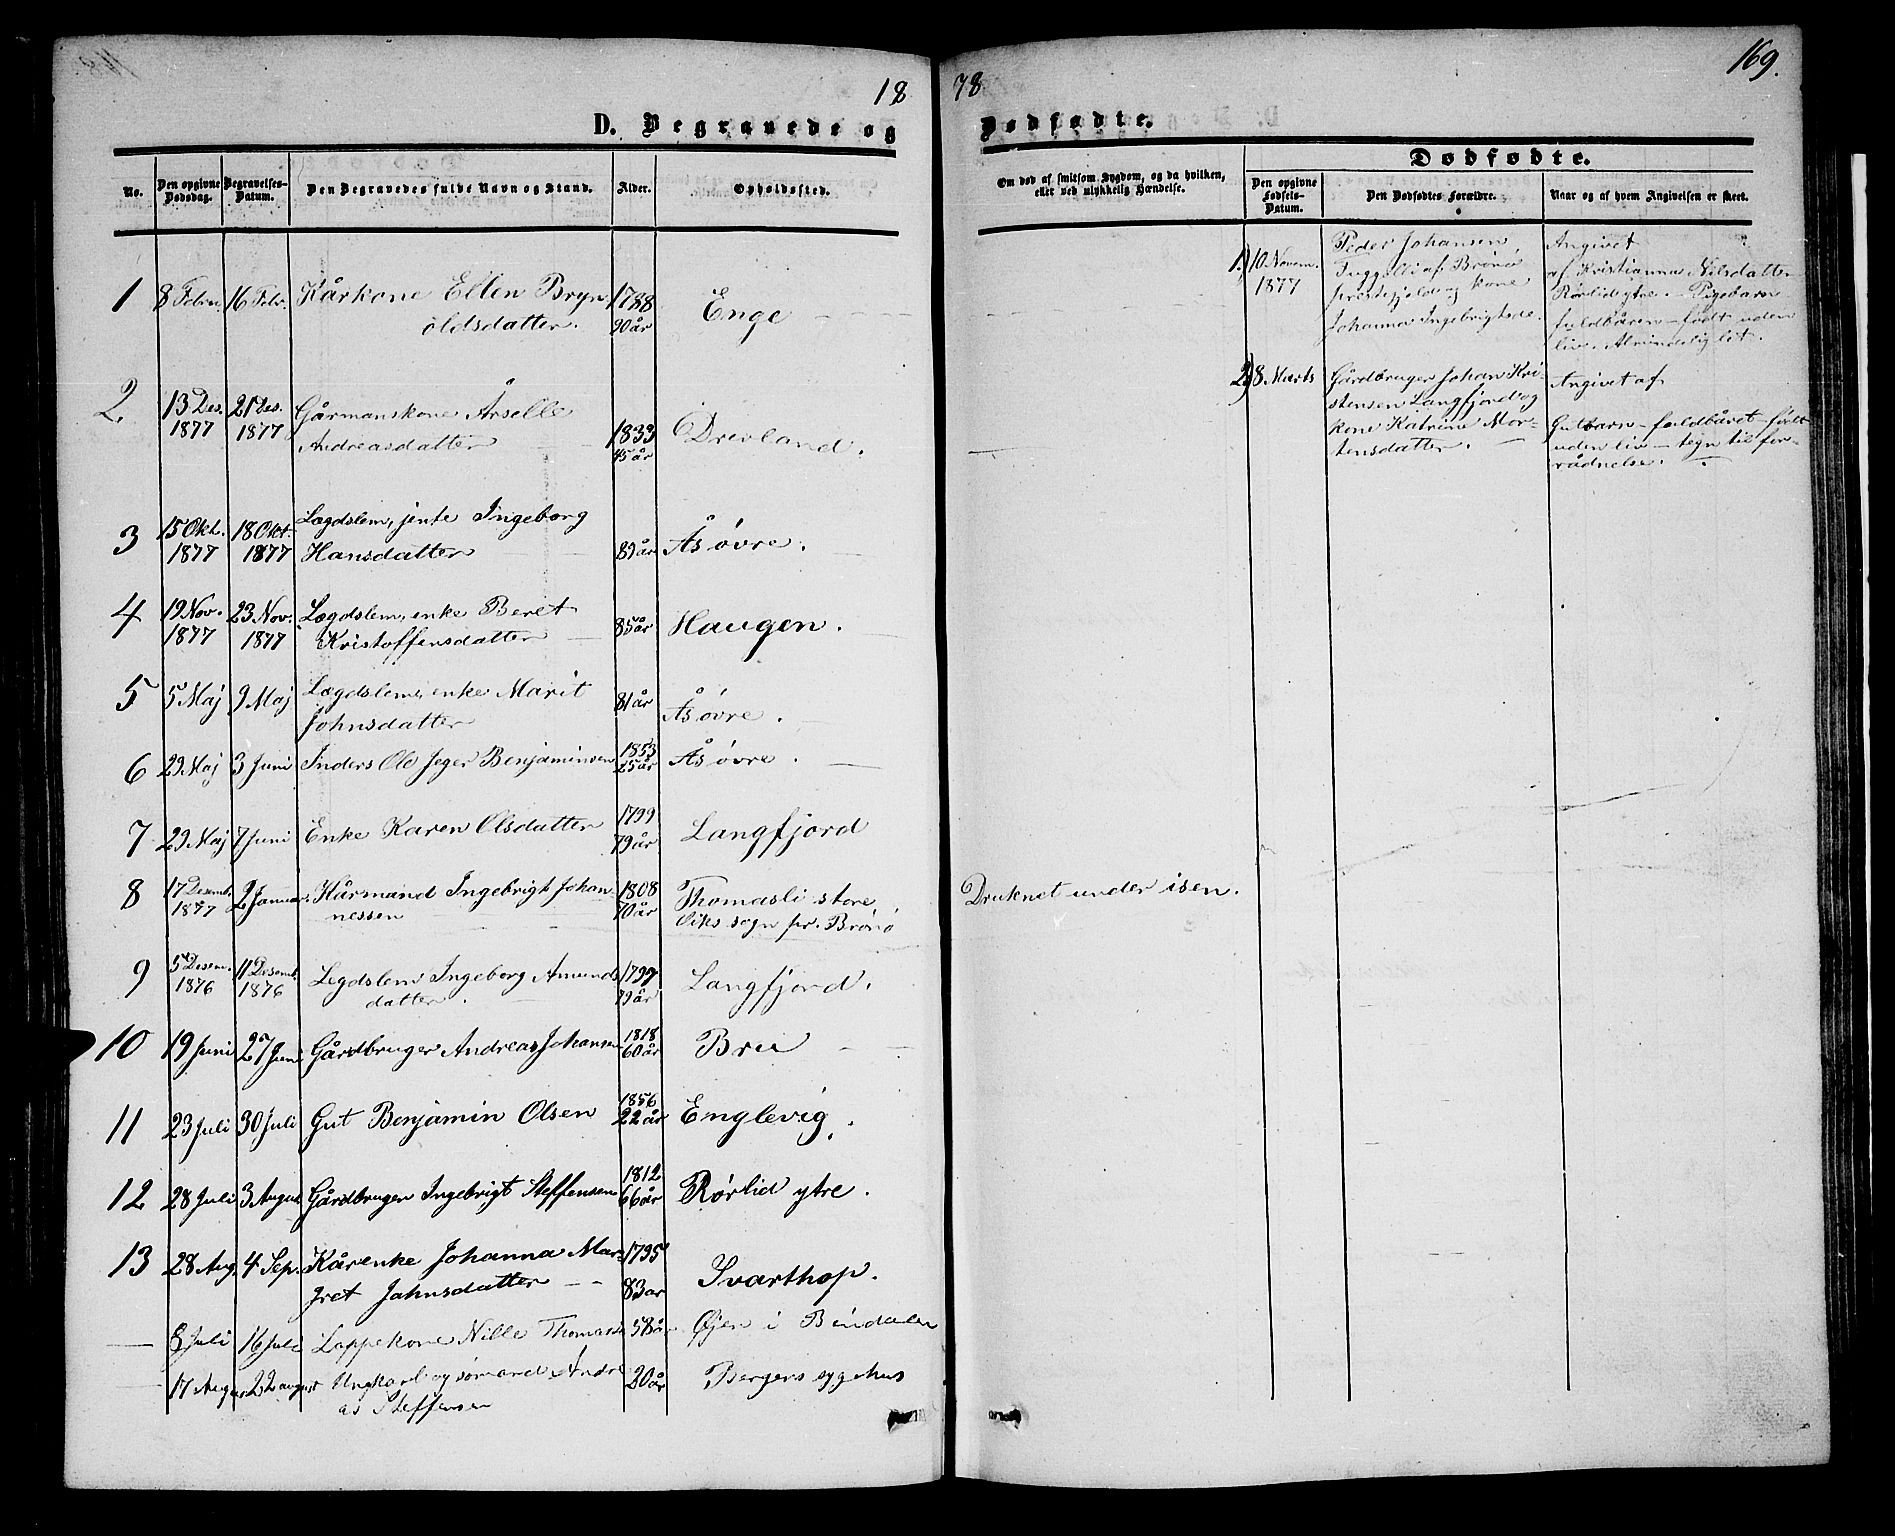 169.
18 78
D. Begravede og Dødfødte.
No.
Den opgivne Dødsdag.
Begravelses-Datum.
Den Begravedes fulde Navn og Stand.
Alder.
Opholdssted.
Om død af smitsom Sygdom, og da hvilken, eller ved ulykkelig Hændelse.
Dødfødte.
Den opgivne Fødsels-Datum.
Den Dødfødtes Forældre.
Naar og af hvem Angivelsen er skeet.
1 8 Febru 16 Febr. Kårkone Ellen Bryn 1788
oldsdatter. 90 år Enge
2. 13 Des. 21 Des. Gårmanskone Årselle
1877 1877 Andreasdatter 1833 45 år Drevland.
3 15 Okt. 18 Okt. Lægdslem, jente Ingeborg
1877 1877 Hansdatter 83 år Åsøvre.
4 19 Nov. 23 Nov. Lægdslem, enke Beret
1877 1877 Kristoffersdatter 85 år Haugen.
5 5 Maj 9 Maj Lægdslem, enke Marit 81 år
Johnsdatter Åsøvre.
6 29 Maj 3 Juni Inders Ole Jeger Benjaminsen 1853 25 år Åsøvre.
7 29 Maj 7 Juni Enke Karen Olsdatter 1799 79 år Langfjord
8 17 Desemb. 1877 2 Januar Kårmand Ingebrigt Johan 1808
nessen 70 år Thomasli store
Viks sogn pr. Brønø
Druknet under isen.
9 5 Desem. 1876 11 Desemb. 1876 Legdslem Ingeborg Amunds 1797
datter. 79 år Langfjord.
10 19 Juni 27 Juni Gårdbruger Andreas Johansen 1818 60 år Bru
11 23 Juli 30 Juli Gut Benjamin Olsen 1856 22 år Englevig.
12 28 Juli 3 August Gårdbruger Ingebrigt Steffensen 1812 66 år Rørlid ytre.
13 28 Aug. 4 Sep. Kårenke Johanna Mar 1795
gret Jahnsdatter 83 år Svarthop.
8 Juli 16 Juli Lappekone Nille Thomasd 58 år Øjen i Bindalen
17 August 22 august Ungkarl og sømand Andre 20 år Bergens sygehus
as Steffensen
1.) 10 Novem. 1877
Peder Johansen,
af Brønø
prestegjeld og kone
Johanna Ingebrigtsd.
Angivet
af Kristianna Nilsdatter
Rørlid ytre. - Pigebarn
fuldbåren - født uden
liv. Almindelig
2.) 8 Marts
Gårdbruger Johan Kri-
stensen Langfjord og
kone Katrine Mor-
tensdatter.
Angivet af
Gutbarn - fuldbåret - født
uden liv - tegn til for-
rådnelse.